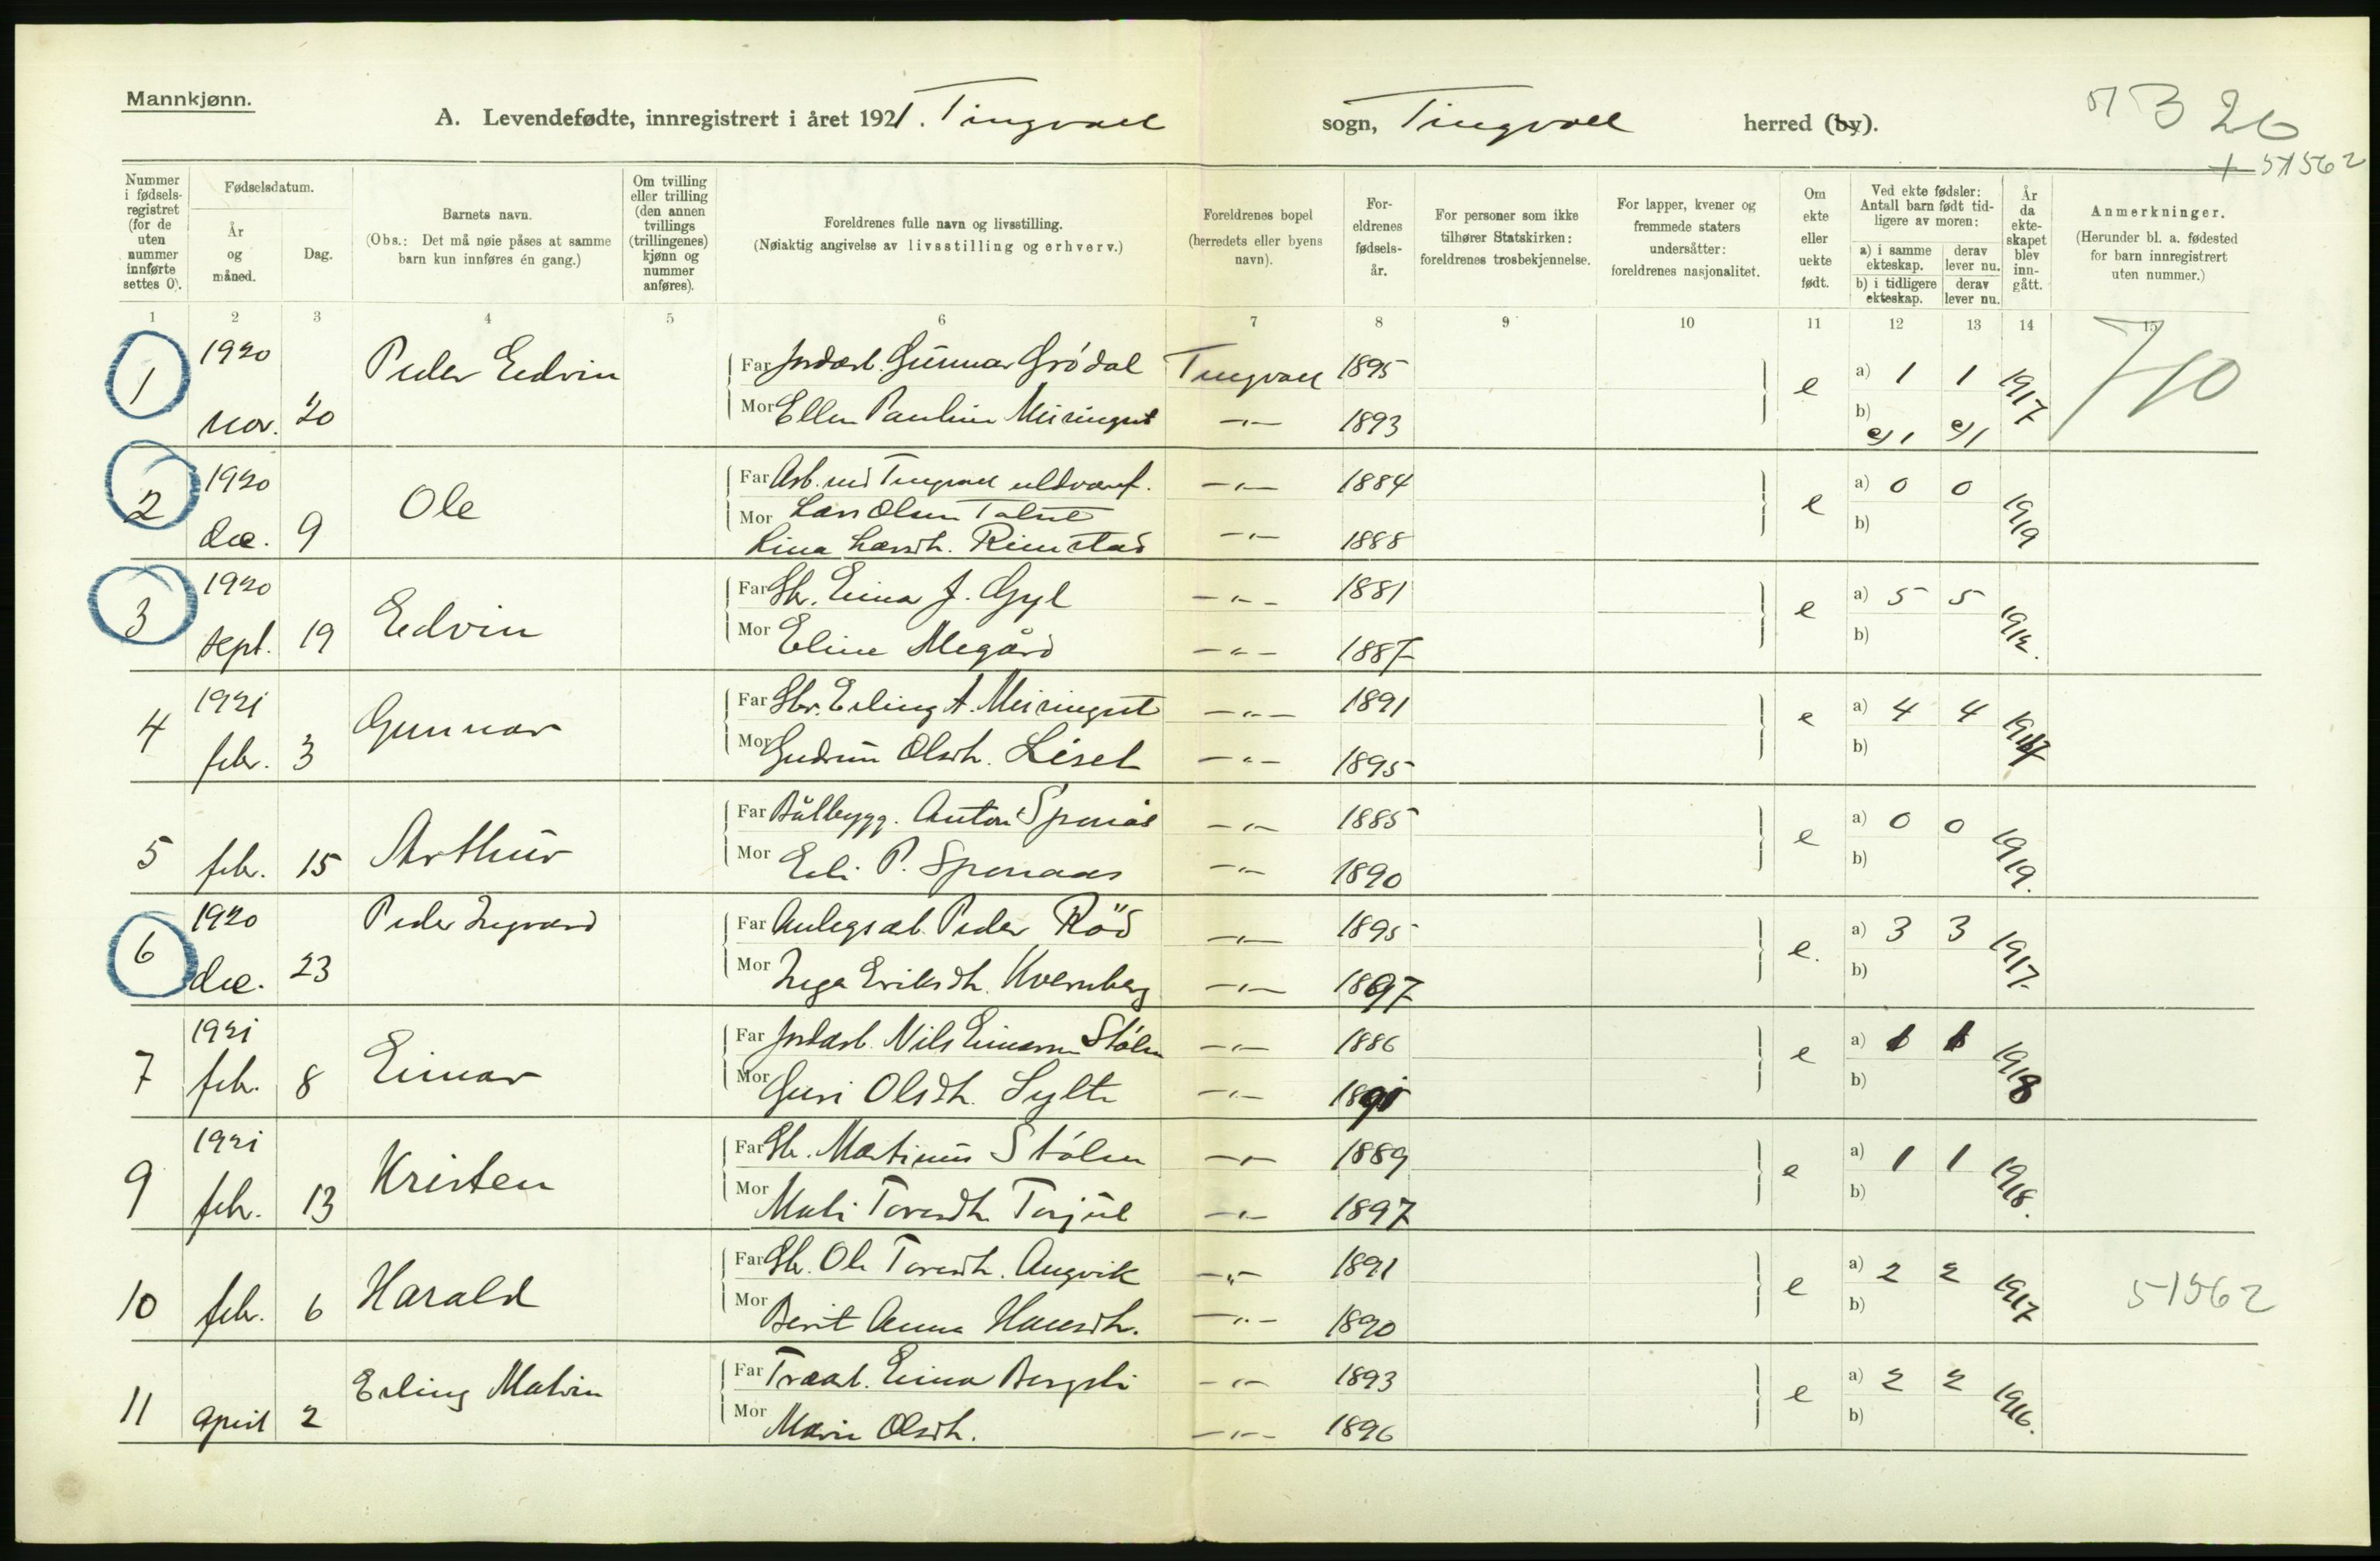 Mannkjønn.
A. Levendefødte, innregistrert i året 1921. Tingvoll sogn, Tingvoll herred (by).
57 B 26
+ 51562
Nummer i fødsels-registret (for de uten nummer innførte settes 0).
Fødselsdatum.
År og måned.
Dag.
Barnets navn.
(Obs.: Det må nøie påses at samme barn kun innføres én gang.)
Om tvilling eller trilling (den annen tvillings (trillingenes) kjønn og nummer anføres).
Foreldrenes fulle navn og livsstilling.
(Nøiaktig angivelse av livsstilling og erhverv.)
Foreldrenes bopel (herredets eller byens navn).
For-eldrenes fødsels-år.
For personer som ikke tilhører Statskirken: foreldrenes trosbekjennelse.
For lapper, kvener og fremmede staters undersåtter: foreldrenes nasjonalitet.
Om ekte eller uekte født.
Ved ekte fødsler: Antall barn født tid-ligere av moren:
a) i samme ekteskap. derav lever nu.
b) i tidligere ekteskap. derav lever nu.
År da ekte-skapet blev inn-gått.
Anmerkninger.
(Herunder bl. a. fødested for barn innregistrert uten nummer.)
1 2 3 4 5 6 7 8 9 10 11 12 13 14 15
1 1920 nov. 20 Peder Edvin
Far Jordarb. Gunnar Grødal Tingvoll 1895 e a) 1 1 1917
Mor Ellen Pauline Meisingset -"- 1893 b) e/1 e/1
2 1920 dec. 9 Ole
Far Arb. ved Tingvoll uldvaref. -"- 1884 e a) 0 0 1919
Mor Lars Olsen
Lina Larsdt. Rimstad -"- 1888 b)
3 1920 sept. 19 Edvin
Far Gbr. Einar J. Gyl -"- 1881 e a) 5 5 1912.
Mor Eline Megård -"- 1887 b)
4 1921 febr. 3 Gunnar
Far Gbr. Erling A. Meisingset -"- 1891 e a) 4 4
Mor Gudrun Olsdt. Liset -"- 1895 b)
5 febr. 15 Arthur
Far Båtbygg. Anton Sponås -"- 1885 e a) 0 0 1919.
Mor Eli P. Sponaas -"- 1890 b)
6 1920 dec. 23 Peder Ingvard
Far Anlegsarb. Peder Röd -"- 1895 e. a) 3 3 1917.
Mor Inga Eriksdt. Kvernberg -"- 1897 b)
7 1921 febr. 8 Einar
Far Jordarb. Nils Einarsen Stølen -"- 1886 e a) 1 1 1918
Mor Guri Olsdt. Sylte -"- 1891 b)
9 1921 febr. 13 Kristen
Far Gbr. Martinus Stølen -"- 1889 e a) 1 1 1918.
Mor Mali Toresdt. Torjul -"- 1897 b)
10 febr. 6 Harald
Far Gbr. Ole Toresdt. Angvik -"- 1891 e a) 2 2 1917 51562
Mor Berit Anna Hansdt. -"- 1890 b)
11 april 2 Erling Malvin
Far Einar Bergsli -"- 1893 e a) 2 2 1916.
Mor Marie Olsdt. -"- 1896 b)